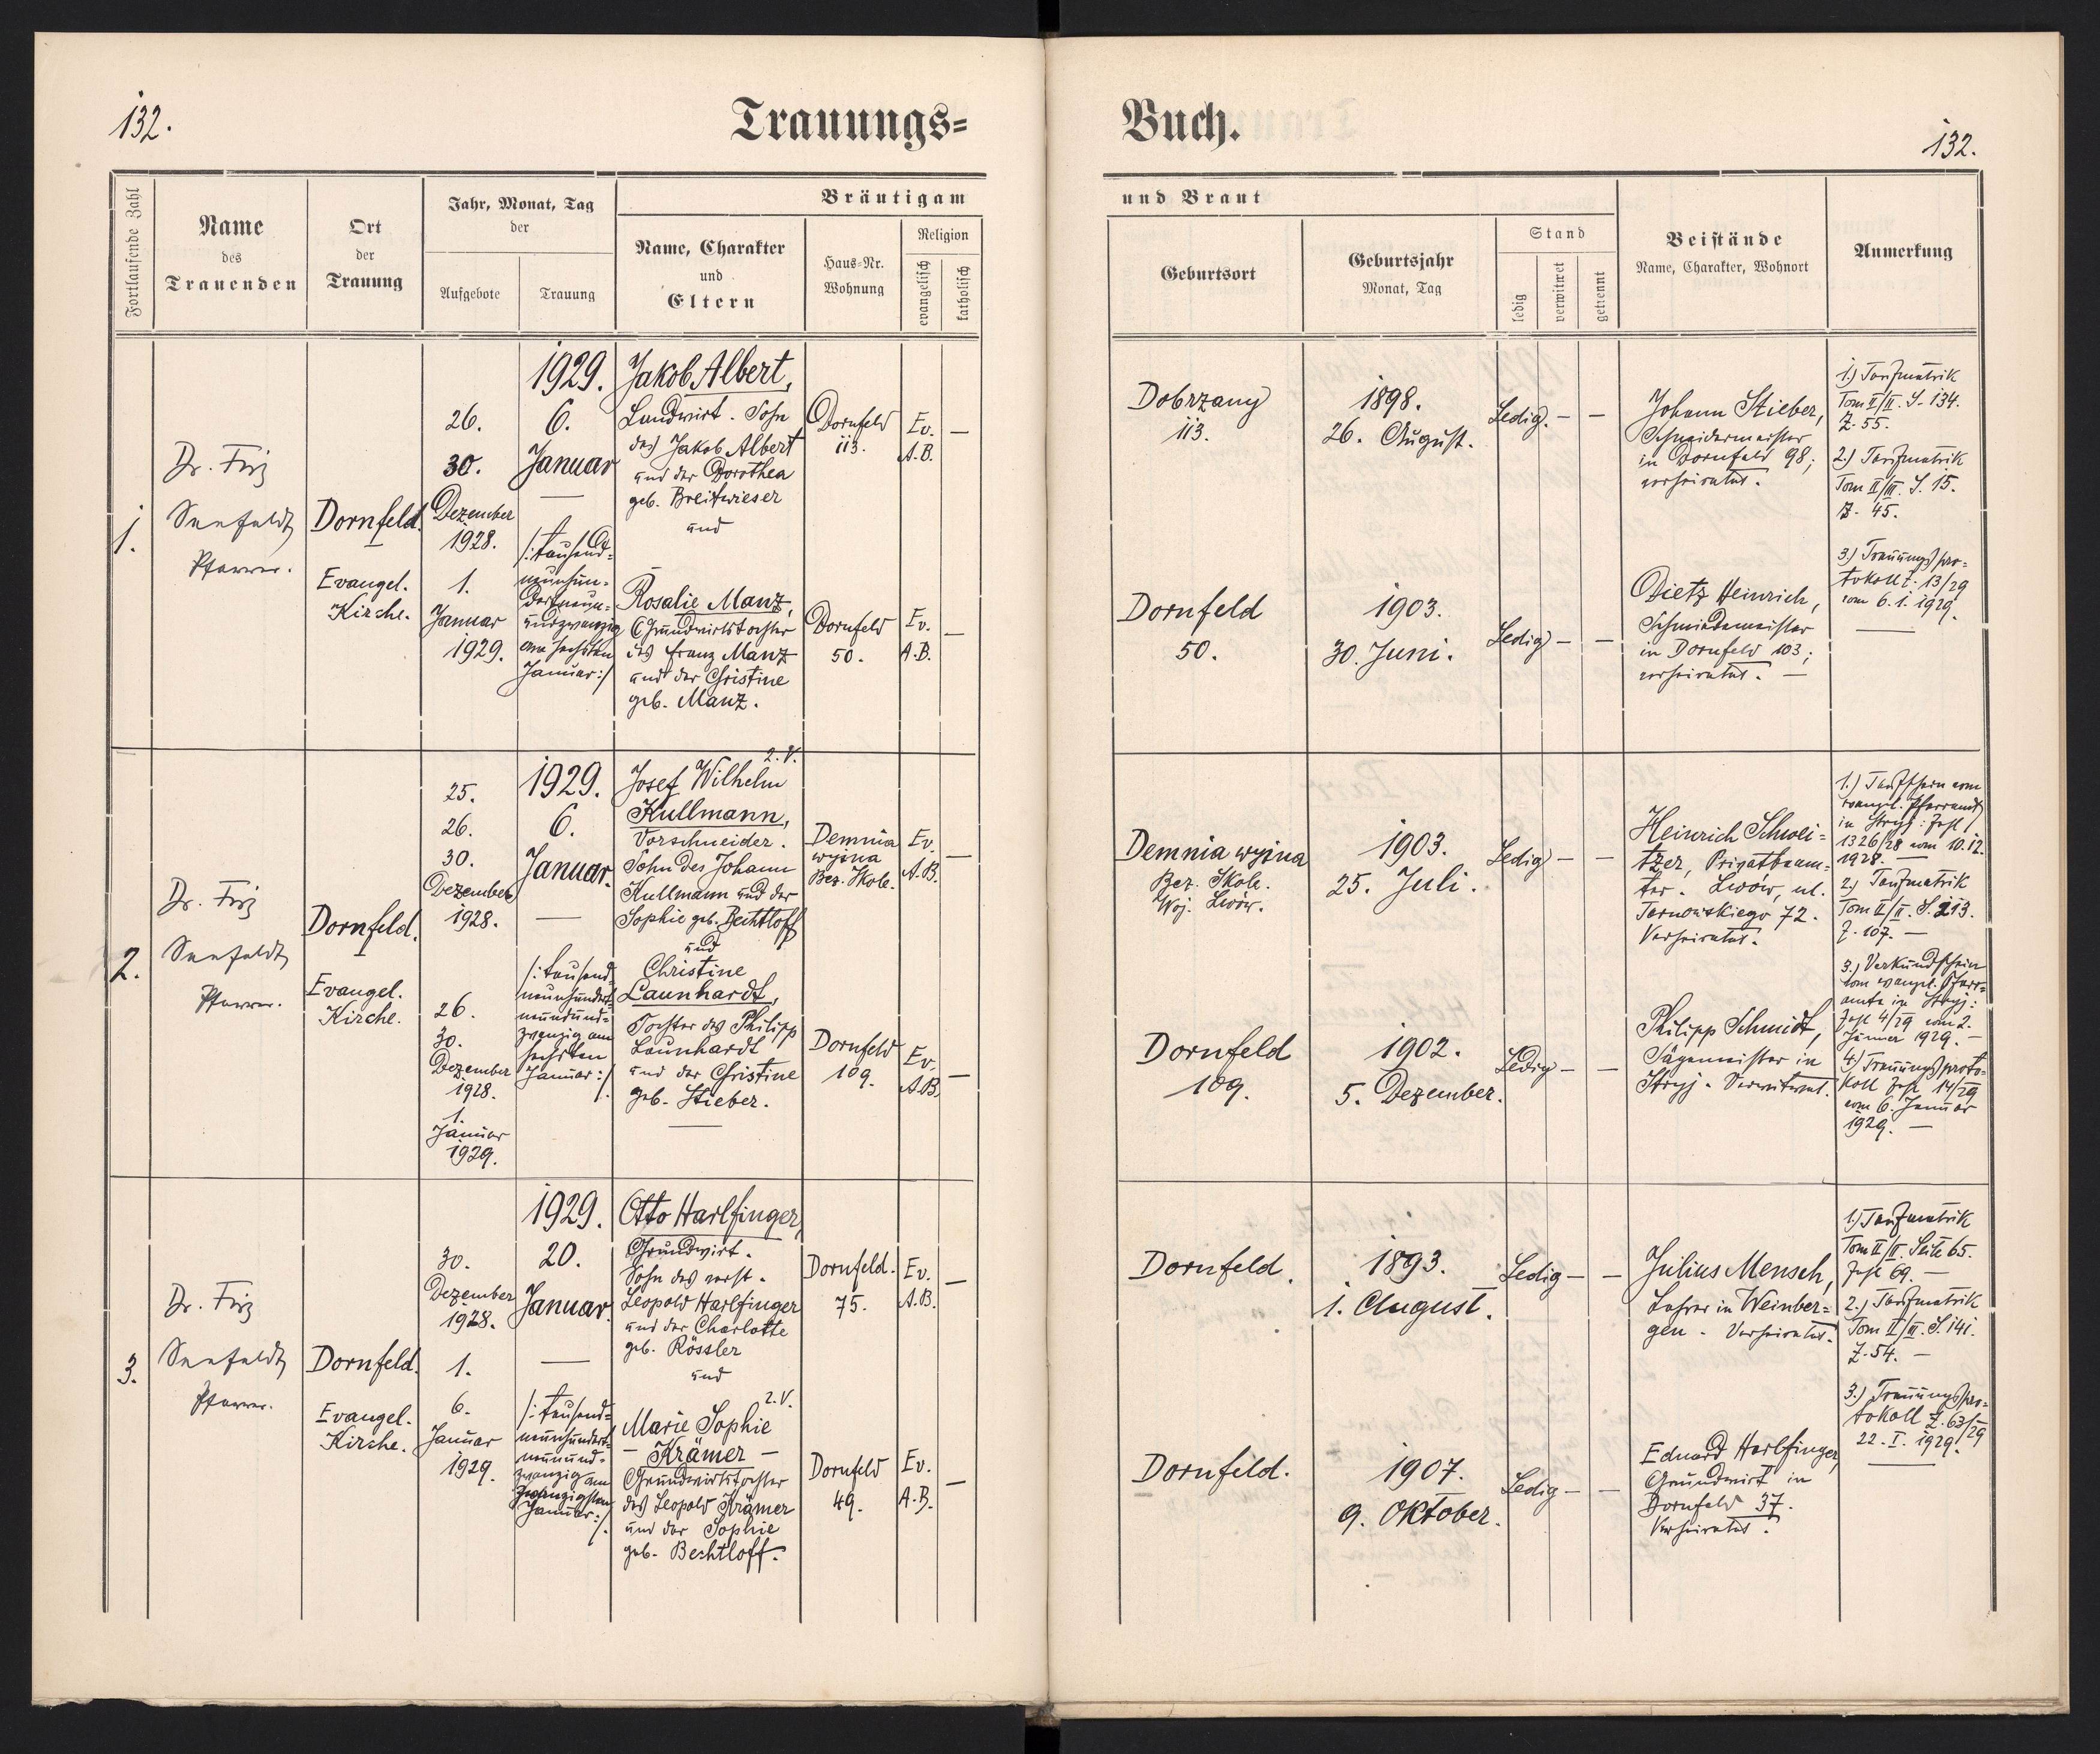 132.
Trauungs=
Fortlaufende Zahl
Name
des
Trauenden
Ort
der
Trauung
Jahr, Monat, Tag
der
Aufgebote
Trauung
Bräutigam
Name, Charakter
und
Eltern
Haus=Nr.
Wohnung
Religion
evangelisch
katholisch
1.
Dr.
Seefeldt
Pfarrer.
Dornfeld.
Evangel.
Kirche.
26.
30.
Dezember
1928.
1.
Januar
1929.
1929.
6.
Januar
—
/:tausend=
neunhun=
dertneun=
undzwanzig
am sechsten
Januar:/
Jakob Albert,
Landwirt. Sohn
des Jakob Albert
und der Dorothea
geb. Breitwieser
und
Rosalie Manz,
Grundwirtstochter
des Franz Manz
und der Christine
geb. Manz.
Dornfeld
113.
Dornfeld
50.
Ev.
A.B.
—
Ev.
A.B.
—
2.
Dr.
Seefeldt
Pfarrer.
Dornfeld.
Evangel.
Kirche.
25.
26.
30.
Dezember
1928.
26.
30.
Dezember
1928.
1.
Januar
1929.
1929.
6.
Januar.
—
/:tausend=
neunhundert=
neunund=
zwanzig am
sechsten
Januar:/.
2.V.
Josef Wilhelm
Kullmann,
Vorschneider.
Sohn des Johann
Kullmann und der
Sophie geb. Bechtloff
und
Christine
Launhardt,
Tochter des Philipp
Launhardt
und der Christine
geb. Stieber.
Demnia
wyżna
Bez. Skole.
Dornfeld
109.
Ev.
A.B.
—
Ev.
A.B.
—
3.
Dr.
Seefeldt
Pfarrer.
Dornfeld.
Evangel.
Kirche.
30.
Dezember
1928.
1.
6.
Januar
1929.
1929.
20.
Januar.
—
/:tausend=
neunhundert=
neunund=
zwanzig am
zwanzigsten
Januar:/.
Otto Harlfinger,
Grundwirt.
Sohn des verst.
Leopold Harlfinger
und der Charlotte
geb. Rössler
und
2.V.
Marie Sophie
— Krämer —
Grundwirtstochter
des Leopold Krämer
und der Sophie
geb. Bechtloff.
Dornfeld.
75.
Dornfeld
49.
Ev.
A.B.
—
Ev.
A.B.
—
Buch.
132.
und Braut
Geburtsort
Geburtsjahr
Monat, Tag
Stand
ledig
verwitwet
getrennt
Beistände
Name, Charakter, Wohnort
Anmerkung
Dobrzany
113.
1898.
26. August.
Ledig. — —
Johann Stieber,
Schneidermeister
in Dornfeld 98;
verheiratet.
1.) Taufmatrik
Tom II/II. S. 134.
Z. 55.
2.) Taufmatrik
Tom II/III. S. 15.
Z. 45.
3.) Trauungspro=
tokoll Z. 13/29
vom 6.1.1929.
Dornfeld
50.
1903.
30. Juni.
Ledig — —
Dietz Heinrich,
Schmiedemeister
in Dornfeld 103;
verheiratet. —
Demnia wyżna
Bez. Skole.
Woj. Lwów.
1903.
25. Juli.
Ledig — —
Heinrich Schwei=
tzer, Privatbeam=
ter. Lwów, ul.
Tarnowskiego 72.
Verheiratet.
1.) Taufschein vom
evangel. Pfarramt
in Stryj: Zahl
1326/28 vom 10.12.
1928. —
2.) Taufmatrik
Tom II/II. S. 213.
Z. 107. —
3.) Verkündschein
vom evangel. Pfarr=
amte in Stryj:
Zahl 4/29 vom 2.
Jänner 1929. —
4.) Trauungsproto=
koll Zahl 14/29
vom 6. Januar
1929. —
Dornfeld
109.
1902.
5. Dezember.
Ledig — —
Philipp Schmidt,
Sägemeister in
Stryj. Verwitwet.
Dornfeld.
1893.
1. August.
Ledig — —
Julius Mensch,
Lehrer in Weinber=
gen. Verheiratet.
1.) Taufmatrik
Tom II/II. Seite 65.
Zahl 69. —
2.) Taufmatrik
Tom II/III. S. 141.
Z. 54. —
3.) Trauungspro=
tokoll Z. 63/29
22. I. 1929.
Dornfeld.
1907.
9. Oktober.
Ledig — —
Eduard Harlfinger,
Grundwirt in
Dornfeld 37.
Verheiratet.